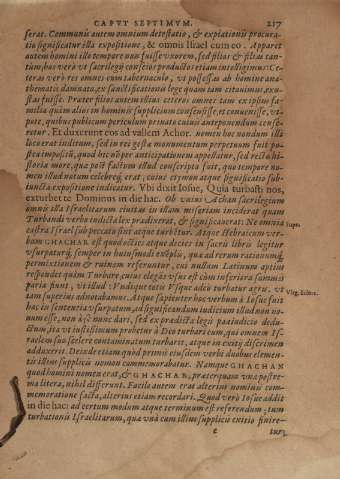 CAPVT SEPTIMVM. 217
serat. Communis autem omnium detestatio, & expiationis procura-
tio significatur illa expositione, & omnis Israel cum eo. Apparet
autem homini illo tempore non fuisse vxorem, sed filios & filias tan-
tùm, hos verò vt sacrilegij conscios productos etiam intelligimus. Ce-
teras verò res omnes cum tabernaculo, vt possessas ab homine ana-
themati damnato, ex sanctificationis lege quam iam citauimus, exu-
stas fuisse. Præter filios autem illius ceteros omnes tam ex ipsius fa-
milia quàm alios in hominis supplicium consensisse, et conuenisse, vt-
pote, quibus publicum periculum priuata causa antependendum cen-
seretur. Et duxerunt eos ad vallem Achor. nomen hoc nondum illi
loco erat inditum, sed in rei gestæ monumentum perpetuum fuit po-
stea impositū, quod hic nūper anticipationem appellatur, sed recta hi-
storia more, quæ post factum illud conscripta fuit, quo tempore no-
men illud notum celebreq́ erat, cuius etymon atque significatio sub-
iuncta expositione indicatur. Vbi dixit Iosue, Quia turbasti nos,
exturbet te Dominus in die hac. Ob vnius Achan sacrilegium
omnis illa Israelitarum ciuitas in illam miseriam inciderat quam
Turbandi verbo indicta lex prædixerat, & significauerat: Ne omnia
castra Israel sub peccato sint atque turbetur. Atque Hebraicum ver- Supr.
bum GHACHAR est quod octies atque decies in sacris libris legitur
vsurpatum, semper in huiusmodi exēplis, quæ ad rerum rationumq́
permixtionem & ruinem referuntur, cui nullum Latinum aptius
respondet quàm Turbare, cuius elegās vsus est cùm inferiora summis
paria fiunt, vt illud Vndique totis Vsque adeò turbatur agris, vt Virg. Eclo. 1.
iam superius adnotabamus. Atque sapienter hoc verbum à Iosue fuit
hac in sententia vsurpatum, ad significandum iudicium illud non no-
num esse, non à se nunc dari, sed ex prædicta legis præiudicio dedu-
ctum, ita vt iustissimum probetur à Deo turbari eum, qui omnem Is-
raelem suo scelere contaminatum turbarit, atque in exitij discrimen
adduxerit. Deinde etiam quòd primis eiusdem verbi duobus elemen-
tis illius supplicij nomen commemorabatur. Namque GHACHAN
quod homini nomen erat, & GHACHAR, præterquam vna postre-
ma litera, nihil differunt. Facilè autem erat alterius nominis com-
memoratione facta, alterius etiam recordari. Quod verò Iosue addit
in die hac: ad certum modum atque terminum est referendum: tum
turbationis Israelitarum, qua vnà cum illius supplicij exitio finire-
e tur,